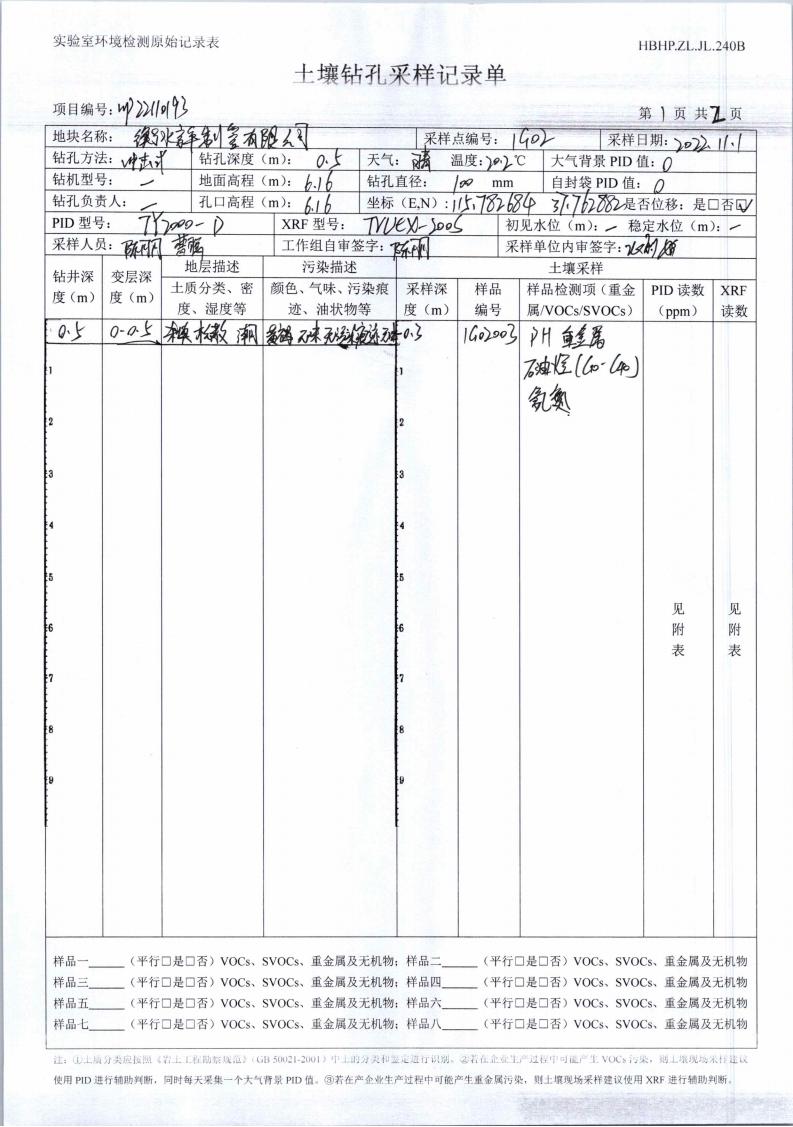 实验室环境检测原始记录表
HBHP.ZL.JL.240B
土壤钻孔采样记录单
项目编号: 22110193
第 1 页 共 2 页
地块名称: 有限公司 采样点编号: 1G02 采样日期: 2022.11.1
钻孔方法: 冲击式 钻孔深度（m）: 0.5 天气: 晴 温度: 20.2℃ 大气背景 PID 值: 0
钻机型号: — 地面高程（m）: 6.16 钻孔直径: 100 mm 自封袋 PID 值: 0
钻孔负责人: — 孔口高程（m）: 6.16 坐标（E,N）: 115.782684 37.762882 是否位移: 是□否☑
PID 型号: TY2000-D XRF 型号: 初见水位（m）: — 稳定水位（m）: —
采样人员: 工作组自审签字: 采样单位内审签字:
钻井深度（m） 变层深度（m） 地层描述 污染描述 土壤采样
土质分类、密度、湿度等 颜色、气味、污染痕迹、油状物等 采样深度（m） 样品编号 样品检测项（重金属/VOCs/SVOCs） PID 读数（ppm） XRF 读数
0.5 0-0.5 松散 潮 无味 0.3 1G02003 PH 重金属
石油烃(C10-C40)
氨氮
1 1
2 2
3 3
4 4
5 5
6 6
7 7
8 8
9 9
见附表 见附表
样品一_____（平行□是□否）VOCs、SVOCs、重金属及无机物; 样品二_____（平行□是□否）VOCs、SVOCs、重金属及无机物
样品三_____（平行□是□否）VOCs、SVOCs、重金属及无机物; 样品四_____（平行□是□否）VOCs、SVOCs、重金属及无机物
样品五_____（平行□是□否）VOCs、SVOCs、重金属及无机物; 样品六_____（平行□是□否）VOCs、SVOCs、重金属及无机物
样品七_____（平行□是□否）VOCs、SVOCs、重金属及无机物; 样品八_____（平行□是□否）VOCs、SVOCs、重金属及无机物
注: ①土质分类应按照《岩土工程勘察规范》（GB 50021-2001）中土的分类和鉴定进行识别。②若在企业生产过程中可能产生 VOCs 污染，则土壤现场采样建议
使用 PID 进行辅助判断，同时每天采集一个大气背景 PID 值。③若在产企业生产过程中可能产生重金属污染，则土壤现场采样建议使用 XRF 进行辅助判断。